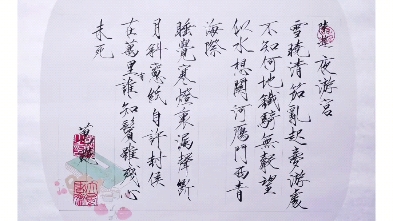 夜游宮
雪曉清笳亂起夢游處
不知何地鐵騎無聲望
似水想關河雁門西青
海際
睡覺寒燈裏漏聲斷
月斜窗紙自許封侯
在萬里有誰知鬢雖殘心
未死